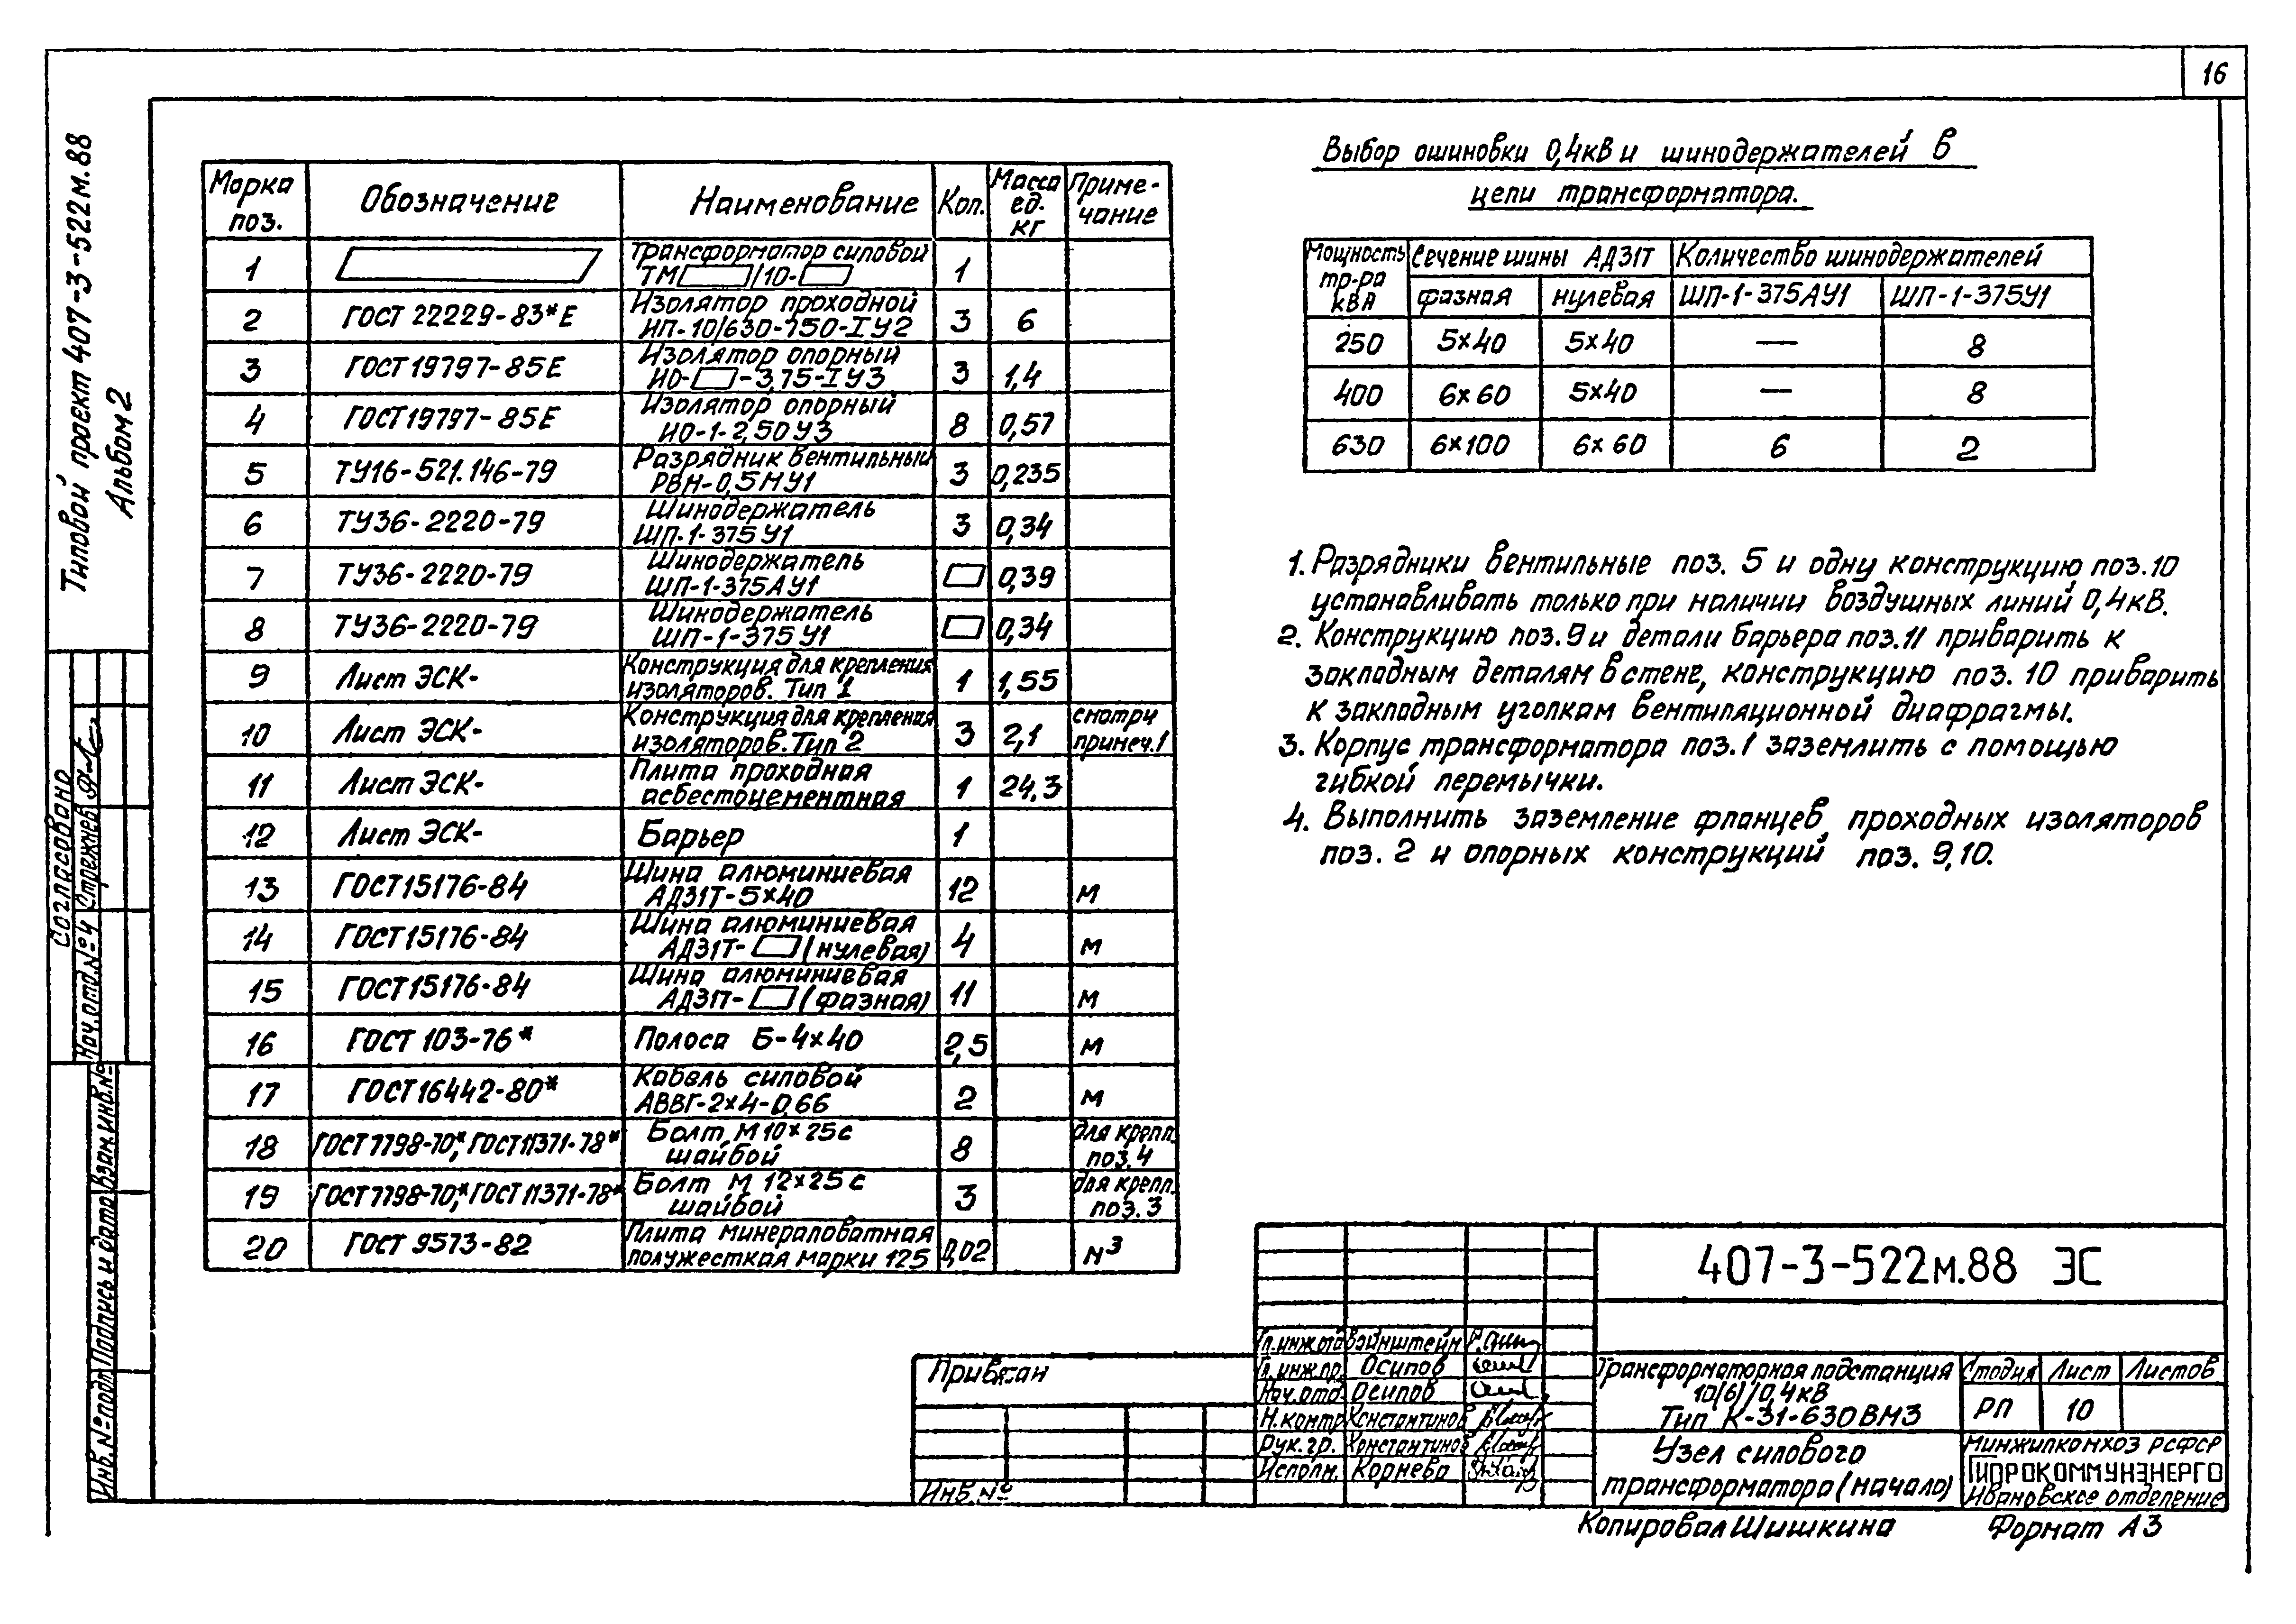 16
Типовой проект 407-3-522м.88
Альбом 2
Марка поз. Обозначение Наименование Кол. Масса ед. кг Приме-чание
1 Трансформатор силовой ТМ /10- 1
2 ГОСТ 22229-83*Е Изолятор проходной ИП-10/630-750-IУ2 3 6
3 ГОСТ 19797-85Е Изолятор опорный ИО- -3,75-IУ3 3 1,4
4 ГОСТ 19797-85Е Изолятор опорный ИО-1-2,50У3 8 0,57
5 ТУ16-521.146-79 Разрядник вентильный РВН-0,5МУ1 3 0,235
6 ТУ36-2220-79 Шинодержатель ШП-1-375У1 3 0,34
7 ТУ36-2220-79 Шинодержатель ШП-1-375АУ1 0,39
8 ТУ36-2220-79 Шинодержатель ШП-1-375У1 0,34
9 Лист ЭСК- Конструкция для крепления изоляторов. Тип 1 1 1,55
10 Лист ЭСК- Конструкция для крепления изоляторов. Тип 2 3 2,1 смотри примеч.1
11 Лист ЭСК- Плита проходная асбестоцементная 1 24,3
12 Лист ЭСК- Барьер 1
13 ГОСТ15176-84 Шина алюминиевая АД31Т-5×40 12 м
14 ГОСТ15176-84 Шина алюминиевая АД31Т- (нулевая) 4 м
15 ГОСТ15176-84 Шина алюминиевая АД31Т- (фазная) 11 м
16 ГОСТ 103-76* Полоса Б-4×40 2,5 м
17 ГОСТ16442-80* Кабель силовой АВВГ-2×4-0,66 2 м
18 ГОСТ7798-70*, ГОСТ11371-78* Болт М10×25 с шайбой 8 для крепл. поз.4
19 ГОСТ7798-70*, ГОСТ11371-78* Болт М12×25 с шайбой 3 для крепл. поз.3
20 ГОСТ 9573-82 Плита минераловатная полужесткая марки 125 0,02 м³
Выбор ошиновки 0,4кВ и шинодержателей в
цепи трансформатора.
Мощность тр-ра кВА Сечение шины АД31Т Количество шинодержателей
фазная нулевая ШП-1-375АУ1 ШП-1-375У1
250 5×40 5×40 — 8
400 6×60 5×40 — 8
630 6×100 6×60 6 2
1. Разрядники вентильные поз. 5 и одну конструкцию поз.10
устанавливать только при наличии воздушных линий 0,4кВ.
2. Конструкцию поз.9 и детали барьера поз.11 приварить к
закладным деталям в стене, конструкцию поз. 10 приварить
к закладным уголкам вентиляционной диафрагмы.
3. Корпус трансформатора поз.1 заземлить с помощью
гибкой перемычки.
4. Выполнить заземление фланцев проходных изоляторов
поз. 2 и опорных конструкций поз. 9,10.
Согласовано
Нач.отд.№4 Стрежнев
Взам.инв.№
Подпись и дата
Инв.№подл.
Привязан
Инв.№
407-3-522м.88 ЭС
Гл.инж.отд Вайнштейн
Гл.инж.пр. Осипов
Нач.отд. Осипов
Н.контр Константинов
Рук.гр. Константинов
Исполн. Корнева
Трансформаторная подстанция
10(6)/0,4кВ
Тип К-31-630ВМ3
Стадия Лист Листов
РП 10
Узел силового
трансформатора (начало)
Минжилкомхоз РСФСР
ГИПРОКОММУНЭНЕРГО
Ивановское отделение
Копировал Шишкина Формат А3